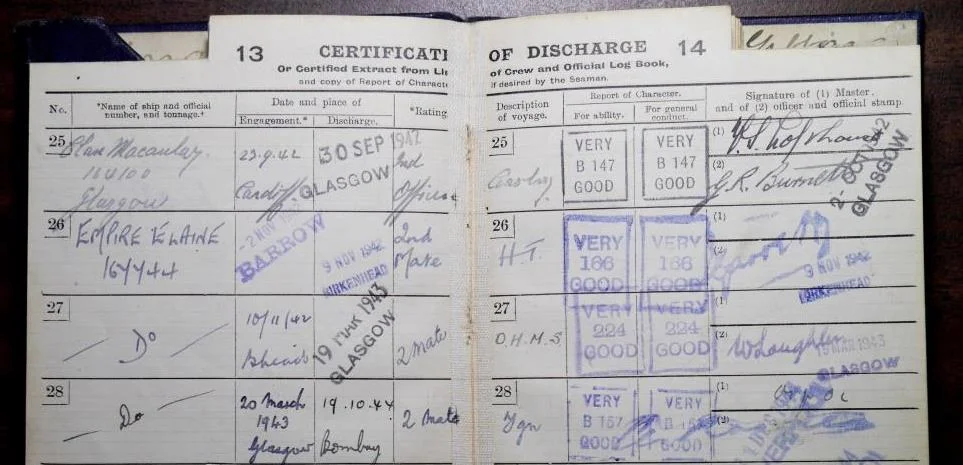 13 CERTIFICATE OF DISCHARGE 14
Or Certified Extract from Li of Crew and Official Log Book,
and copy of Report of Charact if desired by the Seaman.
No.
*Name of ship and official
number, and tonnage.†
Date and place of
Engagement.* Discharge.
*Rating.
Description
of voyage.
Report of Character.
For ability.
For general
conduct.
Signature of (1) Master.
and of (2) officer and official stamp
25
Clan Macaulay
164100
Glasgow
23.9.42
Cardiff
30 SEP 1942
GLASGOW
2nd
Officer
25
VERY
B 147
GOOD
VERY
B 147
GOOD
(1)
(2) G.R. Burnett
2 OCT 1942
GLASGOW
26
EMPIRE ELAINE
167744
-2 NOV
BARROW
9 NOV 1942
BIRKENHEAD
2nd
Mate
26
H.T.
VERY
166
GOOD
VERY
166
GOOD
(1)
(2)
9 NOV 1942
BIRKENHEAD
27
Do
10/11/42
B'head
19 MAR 1943
GLASGOW
2 mate
27
O.H.M.S
VERY
224
GOOD
VERY
224
GOOD
(1)
(2) W Laughlin
19 MAR 1943
GLASGOW
28
Do
20 March
1943
Glasgow
19.10.44
Bombay
2 mate
28
Fgn
VERY
B 167
GOOD
VERY
B
GOOD
(1)
(2)